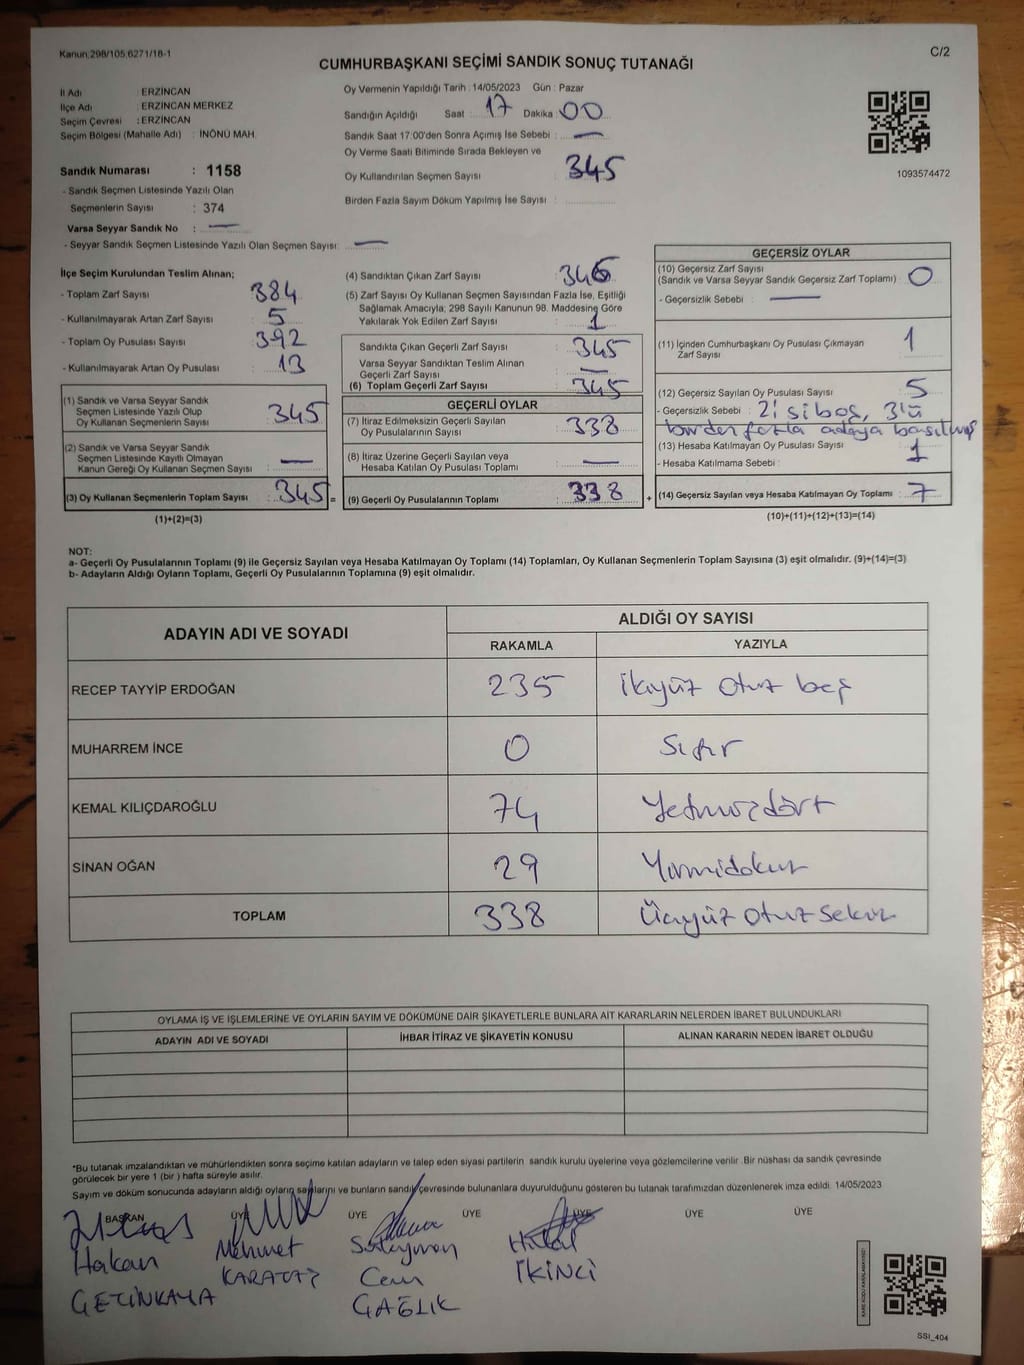 Kanun:298/105,6271/18-1
C/2
CUMHURBAŞKANI SEÇİMİ SANDIK SONUÇ TUTANAĞI
İl Adı : ERZİNCAN
İlçe Adı : ERZİNCAN MERKEZ
Seçim Çevresi : ERZİNCAN
Seçim Bölgesi (Mahalle Adı) : İNÖNÜ MAH.
Sandık Numarası : 1158
- Sandık Seçmen Listesinde Yazılı Olan
Seçmenlerin Sayısı : 374
Varsa Seyyar Sandık No : —
- Seyyar Sandık Seçmen Listesinde Yazılı Olan Seçmen Sayısı : —
Oy Vermenin Yapıldığı Tarih : 14/05/2023 Gün : Pazar
Sandığın Açıldığı Saat : 17 Dakika : 00
Sandık Saat 17:00'den Sonra Açımış İse Sebebi : —
Oy Verme Saati Bitiminde Sırada Bekleyen ve
Oy Kullandırılan Seçmen Sayısı : 345
Birden Fazla Sayım Döküm Yapılmış İse Sayısı :
1093574472
İlçe Seçim Kurulundan Teslim Alınan;
- Toplam Zarf Sayısı : 384
- Kullanılmayarak Artan Zarf Sayısı : 5
- Toplam Oy Pusulası Sayısı : 392
- Kullanılmayarak Artan Oy Pusulası : 13
(1) Sandık ve Varsa Seyyar Sandık
Seçmen Listesinde Yazılı Olup
Oy Kullanan Seçmenlerin Sayısı : 345
(2) Sandık ve Varsa Seyyar Sandık
Seçmen Listesinde Kayıtlı Olmayan
Kanun Gereği Oy Kullanan Seçmen Sayısı : —
(3) Oy Kullanan Seçmenlerin Toplam Sayısı : 345 =
(1)+(2)=(3)
(4) Sandıktan Çıkan Zarf Sayısı : 346
(5) Zarf Sayısı Oy Kullanan Seçmen Sayısından Fazla İse, Eşitliği
Sağlamak Amacıyla; 298 Sayılı Kanunun 98. Maddesine Göre
Yakılarak Yok Edilen Zarf Sayısı : 1
Sandıkta Çıkan Geçerli Zarf Sayısı : 345
Varsa Seyyar Sandıktan Teslim Alınan
Geçerli Zarf Sayısı : —
(6) Toplam Geçerli Zarf Sayısı : 345
GEÇERLİ OYLAR
(7) İtiraz Edilmeksizin Geçerli Sayılan
Oy Pusulalarının Sayısı : 338
(8) İtiraz Üzerine Geçerli Sayılan veya
Hesaba Katılan Oy Pusulası Toplamı : —
(9) Geçerli Oy Pusulalarının Toplamı : 338 +
GEÇERSİZ OYLAR
(10) Geçersiz Zarf Sayısı
(Sandık ve Varsa Seyyar Sandık Geçersiz Zarf Toplamı) : 0
- Geçersizlik Sebebi : —
(11) İçinden Cumhurbaşkanı Oy Pusulası Çıkmayan
Zarf Sayısı : 1
(12) Geçersiz Sayılan Oy Pusulası Sayısı : 5
- Geçersizlik Sebebi : 2'si boş, 3'ü
birden fazla adaya basılmış
(13) Hesaba Katılmayan Oy Pusulası Sayısı : 1
- Hesaba Katılmama Sebebi :
(14) Geçersiz Sayılan veya Hesaba Katılmayan Oy Toplamı : 7
(10)+(11)+(12)+(13)=(14)
NOT:
a- Geçerli Oy Pusulalarının Toplamı (9) ile Geçersiz Sayılan veya Hesaba Katılmayan Oy Toplamı (14) Toplamları, Oy Kullanan Seçmenlerin Toplam Sayısına (3) eşit olmalıdır. (9)+(14)=(3)
b- Adayların Aldığı Oyların Toplamı, Geçerli Oy Pusulalarının Toplamına (9) eşit olmalıdır.
ADAYIN ADI VE SOYADI
ALDIĞI OY SAYISI
RAKAMLA YAZIYLA
RECEP TAYYİP ERDOĞAN 235 İkiyüz otuz beş
MUHARREM İNCE 0 Sıfır
KEMAL KILIÇDAROĞLU 74 Yetmişdört
SİNAN OĞAN 29 Yirmidokuz
TOPLAM 338 Üçyüz otuz sekiz
OYLAMA İŞ VE İŞLEMLERİNE VE OYLARIN SAYIM VE DÖKÜMÜNE DAİR ŞİKAYETLERLE BUNLARA AİT KARARLARIN NELERDEN İBARET BULUNDUKLARI
ADAYIN ADI VE SOYADI İHBAR İTİRAZ VE ŞİKAYETİN KONUSU ALINAN KARARIN NEDEN İBARET OLDUĞU
*Bu tutanak imzalandıktan ve mühürlendikten sonra seçime katılan adayların ve talep eden siyasi partilerin sandık kurulu üyelerine veya gözlemcilerine verilir .Bir nüshası da sandık çevresinde
görülecek bir yere 1 (bir ) hafta süreyle asılır.
Sayım ve döküm sonucunda adayların aldığı oyların sayılarını ve bunların sandık çevresinde bulunanlara duyurulduğunu gösteren bu tutanak tarafımızdan düzenlenerek imza edildi. 14/05/2023
BAŞKAN ÜYE ÜYE ÜYE ÜYE ÜYE ÜYE
Hakan Mehmet Süleyman Hilal
ÇETİNKAYA KARATAŞ Cem İKİNCİ
ÇAĞLIK
KARE KODU KARALAMAYINIZ!
SSI_404